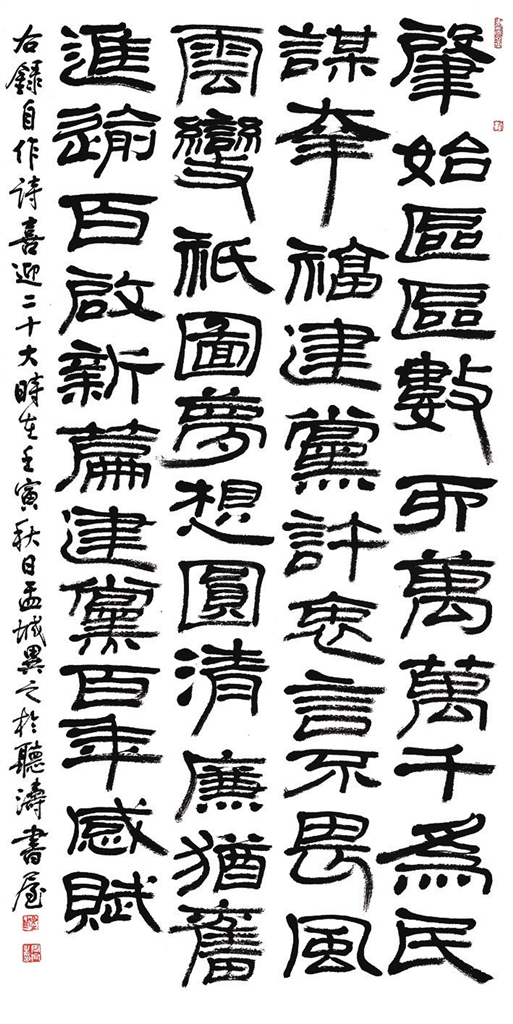 肇始區區數而萬萬千為民
謀幸福建黨許忠言不畏風
雲變祇圖夢想圓清廉猶奮
進逾百啟新篇建黨百年感賦
右錄自作詩喜迎二十大時在壬寅秋日盂城異之於聽濤書屋